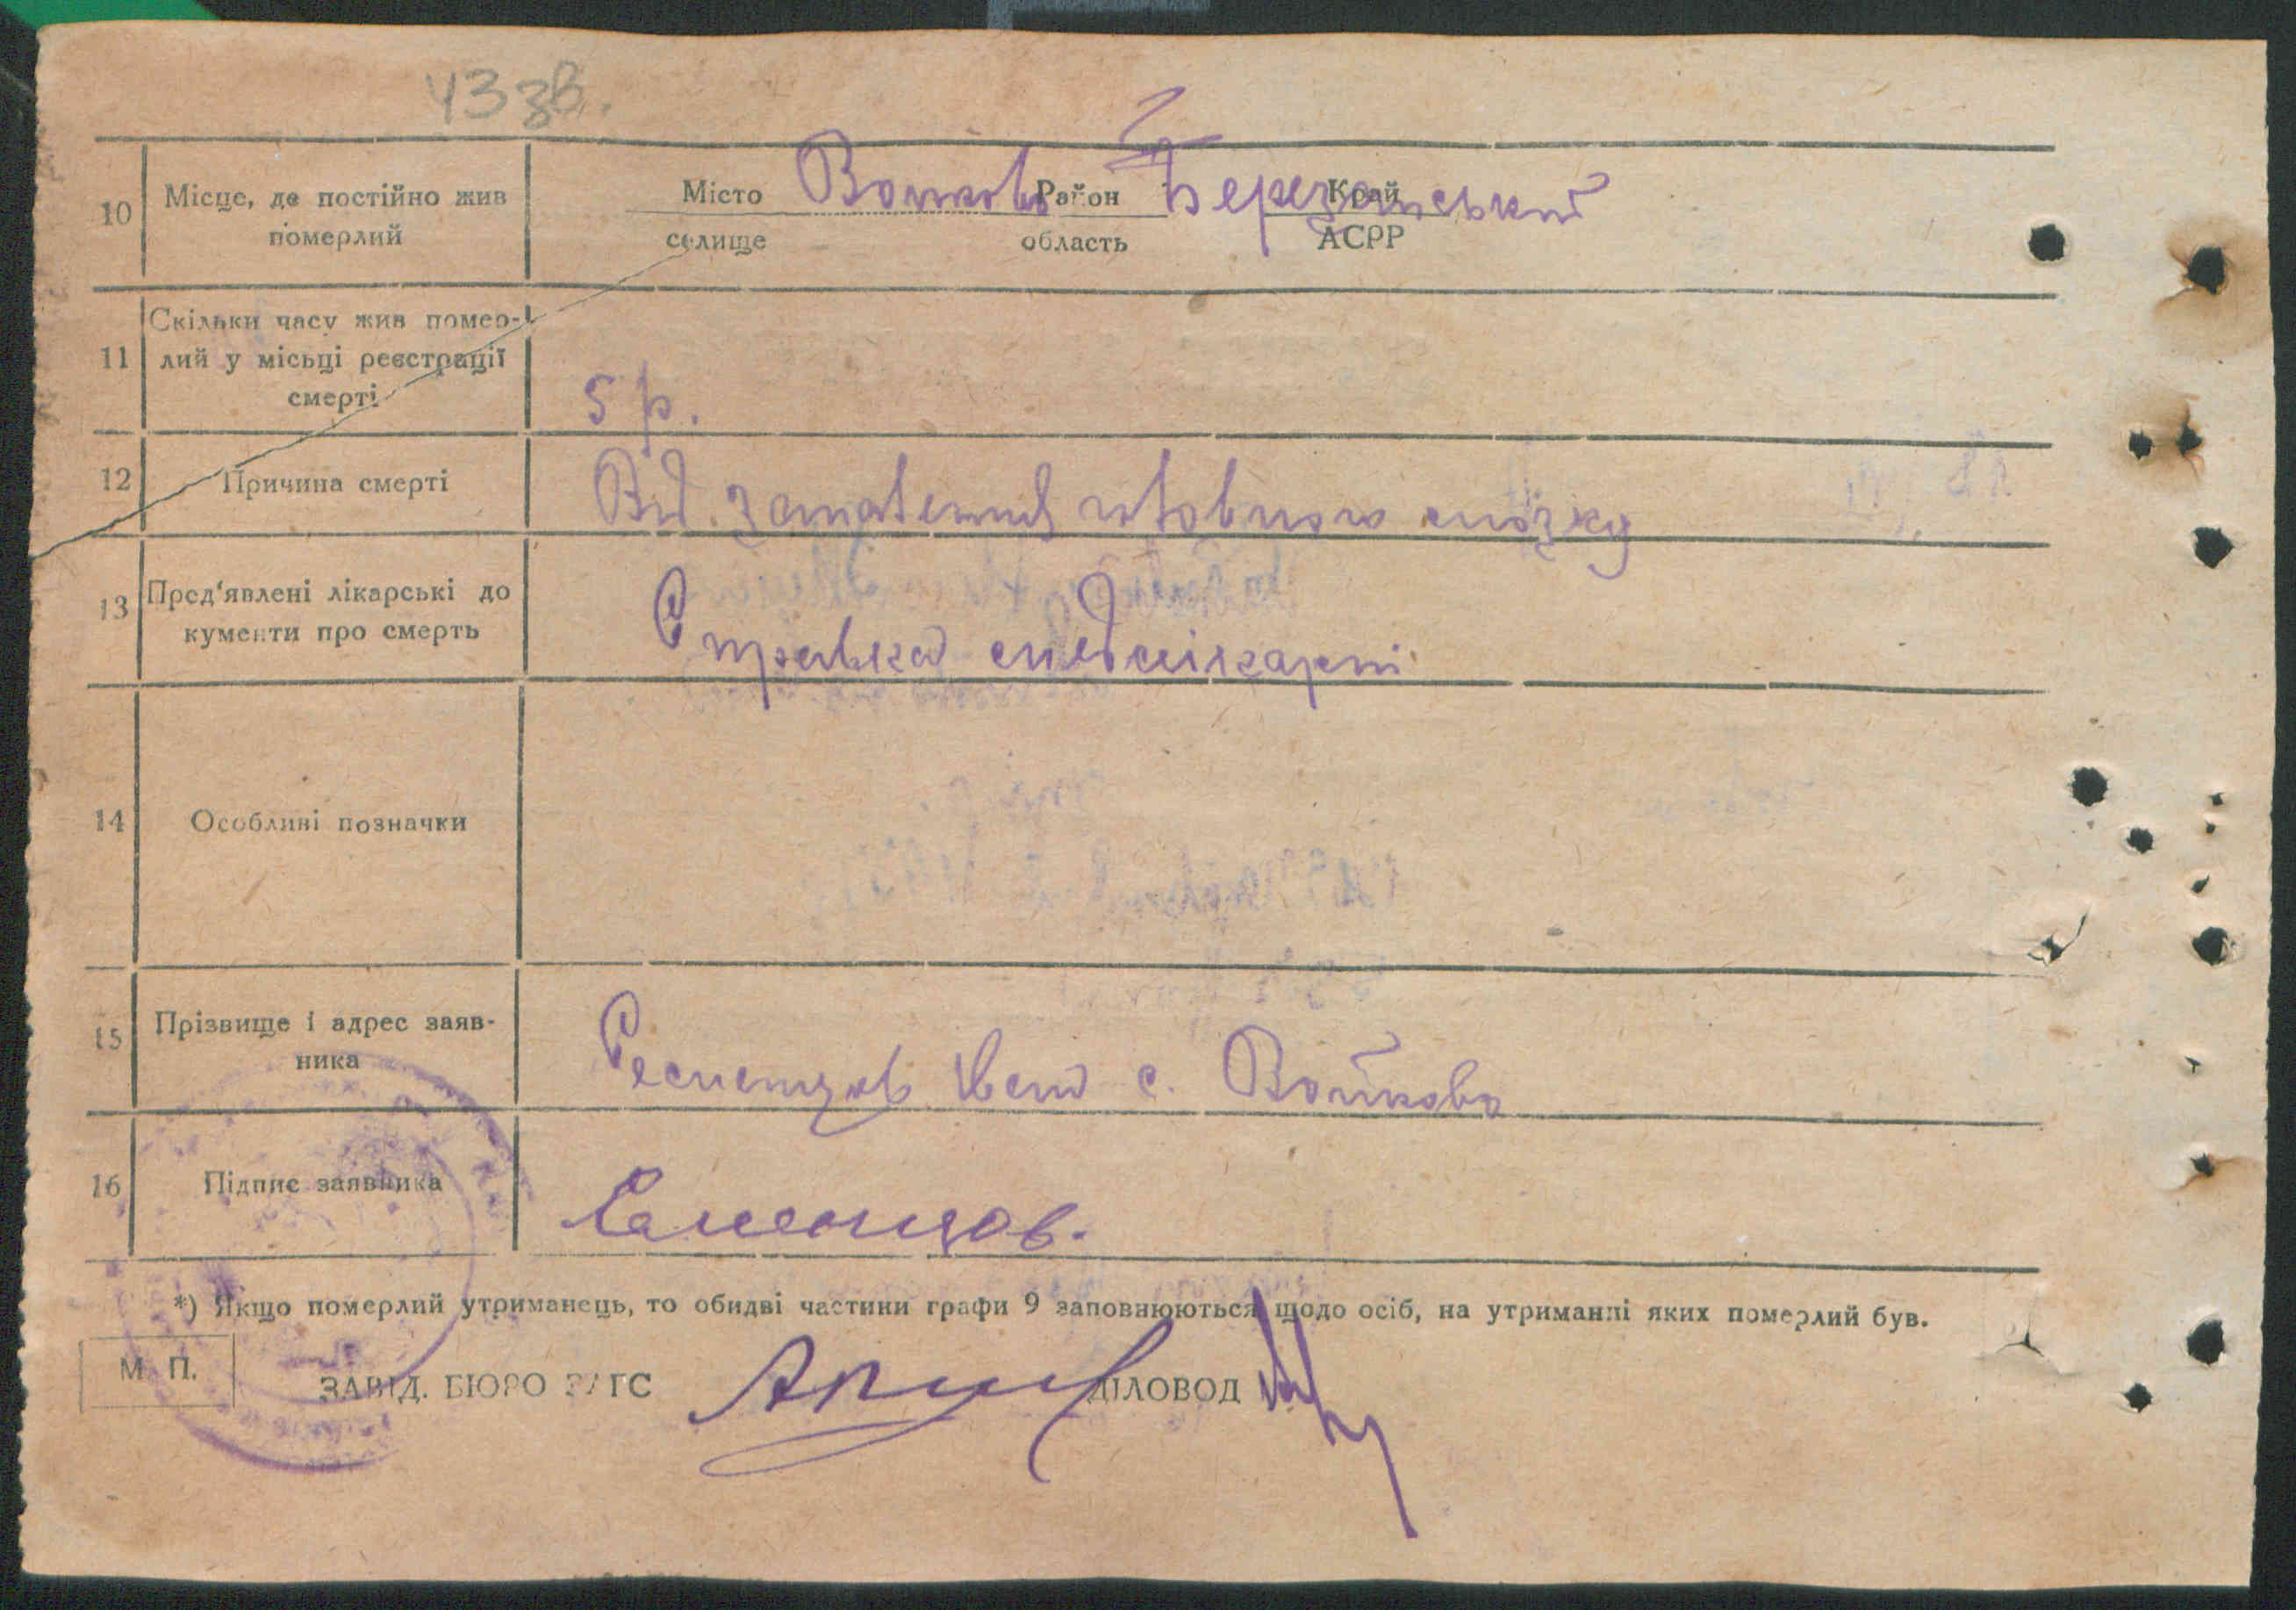 43 зв.
10 Місце, де постійно жив померлий
Місто Войково Район Березанський Край
селище область АСРР
11 Скільки часу жив помер-
лий у місьці реєстрації
смерті
5 р.
12 Причина смерті
Від запалення головного мозку
13 Пред'явлені лікарські до
кументи про смерть
Справка медлікарні
14 Особливі позначки
15 Прізвище і адрес заяв-
ника
с. Войково
16 Підпис заявника
Семенцов.
*) Якщо померлий утриманець, то обидві частини графи 9 заповнюються щодо осіб, на утриманні яких померлий був.
М. П.
ЗАВІД. БЮРО ЗАГС ДІЛОВОД